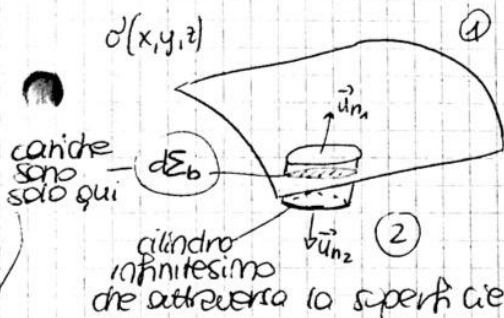 σ(x,y,z)
①
u⃗n₁
cariche
sono
solo qui
dΣb
②
u⃗n₂
cilindro
infinitesimo
che attraversa la superficie